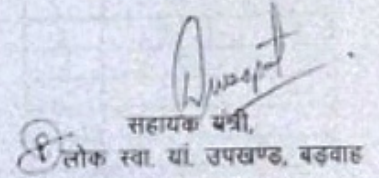 सहायक यंत्री,
लोक स्वा. यां. उपखण्ड, बड़वाह